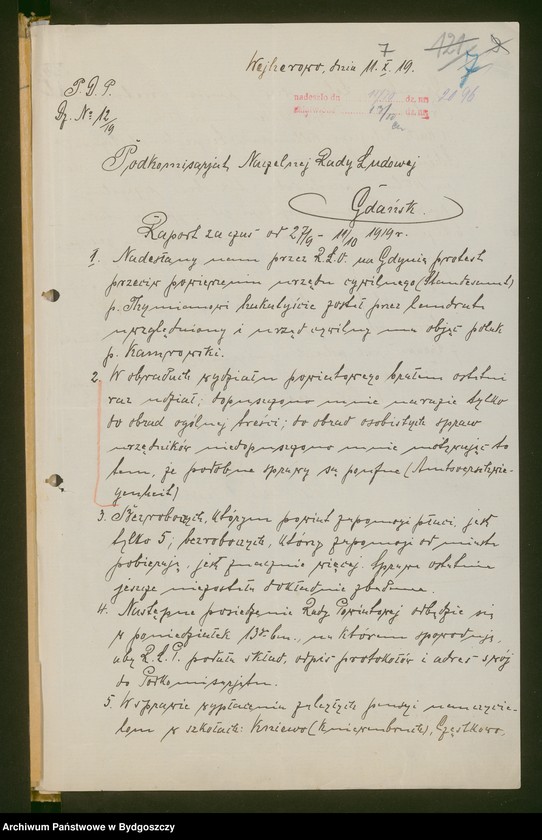 7
Wejherowo, dnia 11.X.19.
121
7
P. D. P.
Dz. No 12/19
nadeszło dn. 11/10 dz. nn 2096
Podkomisarjat Naczelnej Rady Ludowej
Gdańsk.
Raport za czas od 27/9 - 11/10 1919 r.
1. Nadesłany nam przez R.L.O. na Gdynię protest
przeciw powierzeniu urzędu cywilnego (Standesamt)
p. Thymianowi hakatyście został przez landrata
uwzględniony i urząd cywilny ma objąć polak
p. Kamrowski.
2. W obradach wydziału powiatowego brałem ostatni
raz udział; dopuszczono mnie narazie tylko
do obrad ogólnej treści; do obrad osobistych spraw
urzędników niedopuszczono mnie motywując to
tem, że podobne sprawy są poufne (Amtsverschwie-
genheit)
3. Bezrobotnych, którym powiat zapomogi płaci, jest
tylko 5; bezrobotnych, którzy zapomogi od miasta
pobierają, jest znacznie więcej. Sprawa ostatnia
jeszcze niezostała dokładnie zbadana.
4. Następne posiedzenie Rady Powiatowej odbędzie się
w poniedziałek 13 tbm., na którem spowoduję,
aby R.L.P. podała skład, odpis protokołów i adres swój
do Podkomisarjatu.
5. W sprawie wypłacenia zaległych pensyi nauczycie-
lom w szkołach: Kniewo (Kniewenbruch), Częstkowo,
Archiwum Państwowe w Bydgoszczy